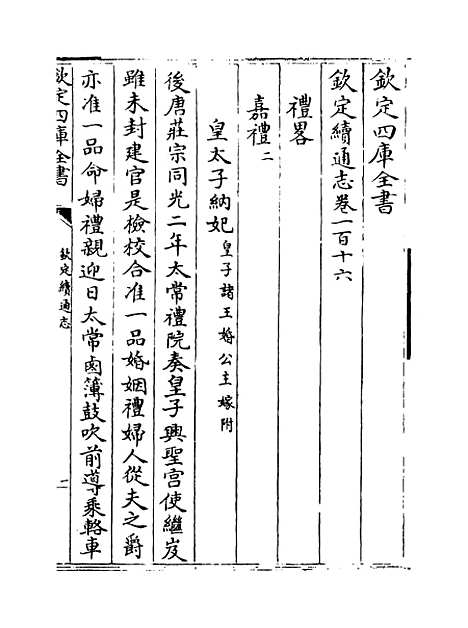 欽定四庫全書
欽定續通志卷一百十六
禮畧
嘉禮二
皇太子納妃皇子諸王婚公主嫁附
後唐莊宗同光二年太常禮院奏皇子興聖宮使繼岌
雖未封建官是檢校合准一品婚姻禮婦人從夫之爵
亦准一品命婦禮親迎日太常鹵簿鼓吹前導乘輅車
欽定四庫全書
欽定續通志